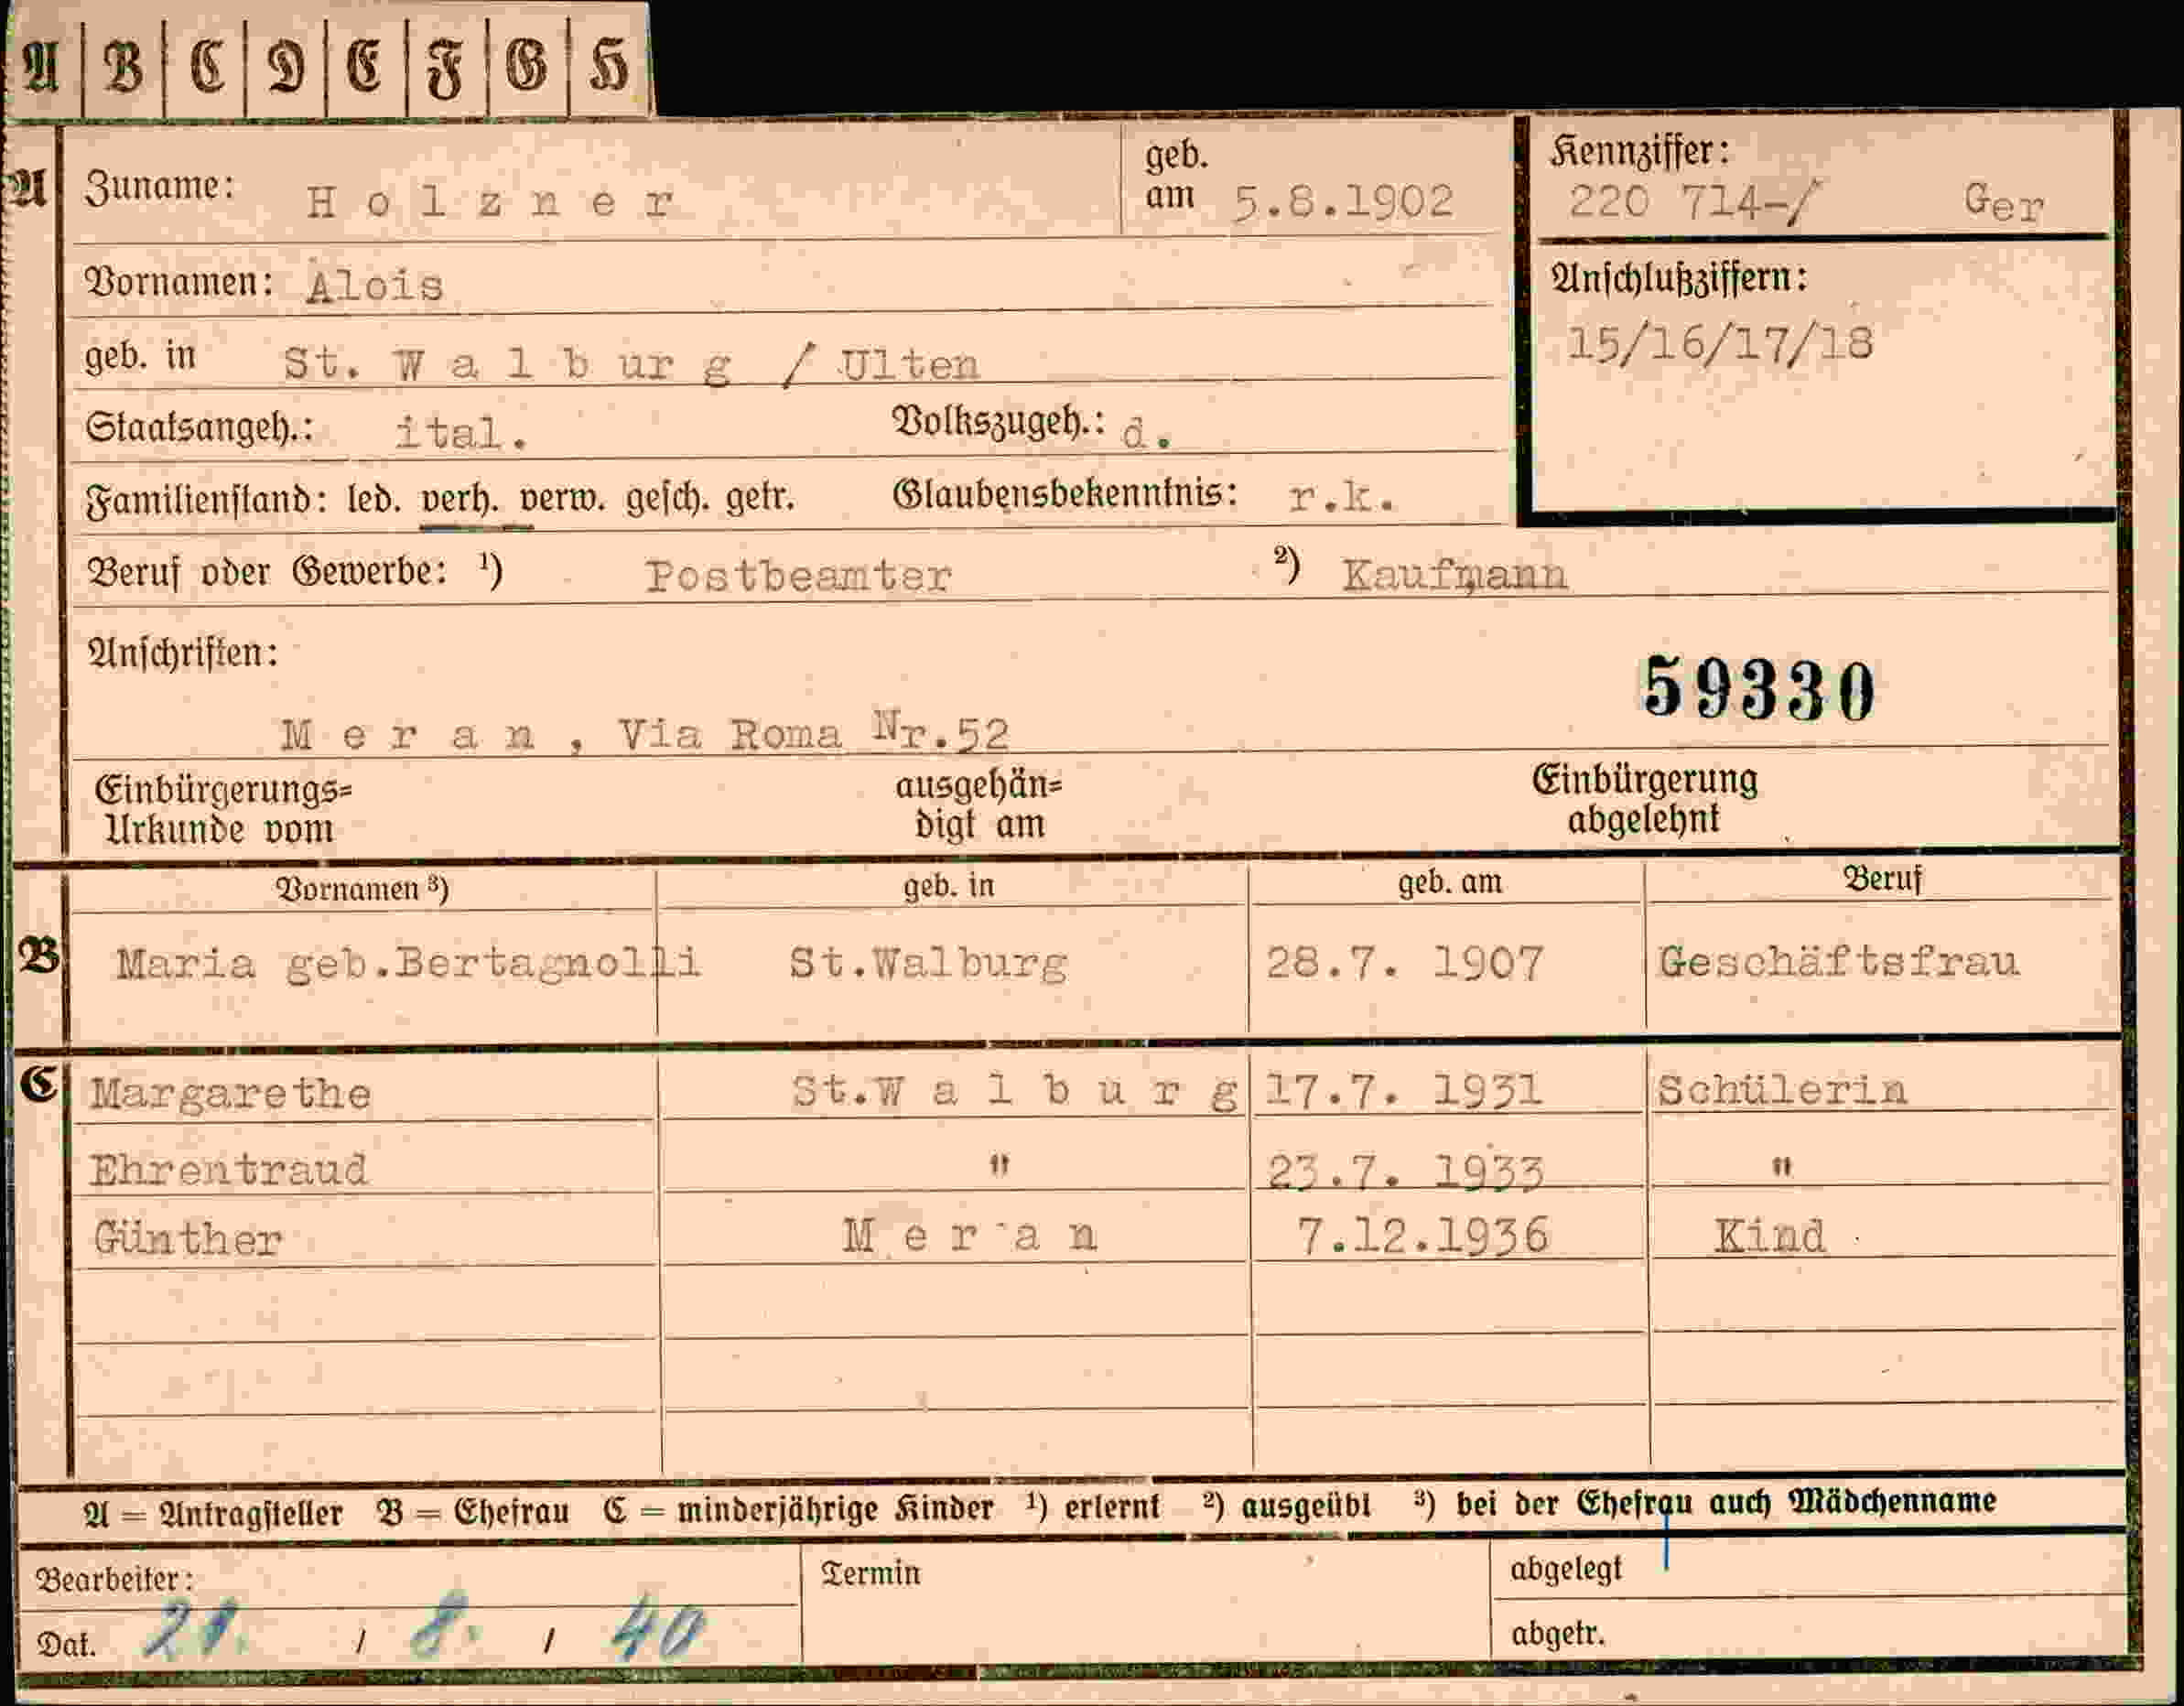 A B C D E F G H
A Zuname: Holzner geb. am 5.8.1902 Kennziffer: 220 714-/ Ger
Vornamen: Alois Anschlußziffern:
geb. in St. Walburg / Ulten 15/16/17/18
Staatsangeh.: ital. Volkszugeh.: d.
Familienstand: led. verh. verw. gesch. getr. Glaubensbekenntnis: r.k.
Beruf oder Gewerbe: ¹) Postbeamter ²) Kaufmann
Anschriften:
59330
Meran, Via Roma Nr.52
Einbürgerungs= ausgehän= Einbürgerung
Urkunde vom digt am abgelehnt
Vornamen ³) geb. in geb. am Beruf
B Maria geb.Bertagnolli St.Walburg 28.7. 1907 Geschäftsfrau
C Margarethe St.Walburg 17.7. 1931 Schülerin
Ehrentraud " 23.7. 1933 "
Günther Meran 7.12.1936 Kind
A = Antragsteller B = Ehefrau C = minderjährige Kinder ¹) erlernt ²) ausgeübt ³) bei der Ehefrau auch Mädchenname
Bearbeiter: Termin abgelegt
Dat. / 8. / 40 abgetr.